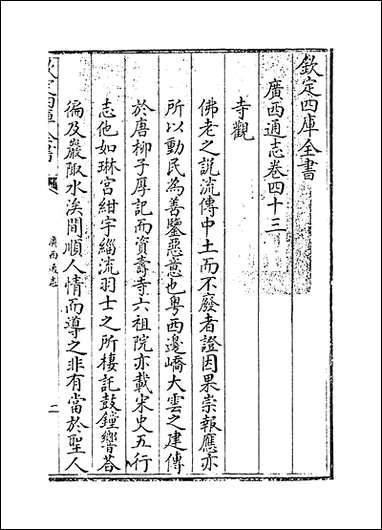 欽定四庫全書
廣西通志卷四十三
寺觀
佛老之說流傳中土而不廢者證因果崇報應亦
所以動民為善鑒惡意也粵西邊嶠大雲之建傳
於唐柳子厚記而資壽寺六祖院亦載宋史五行
志他如琳宫紺宇緇流羽士之所棲託鼓鐘響荅
徧及巖陬水溪間順人情而導之非有當於聖人
廣西通志